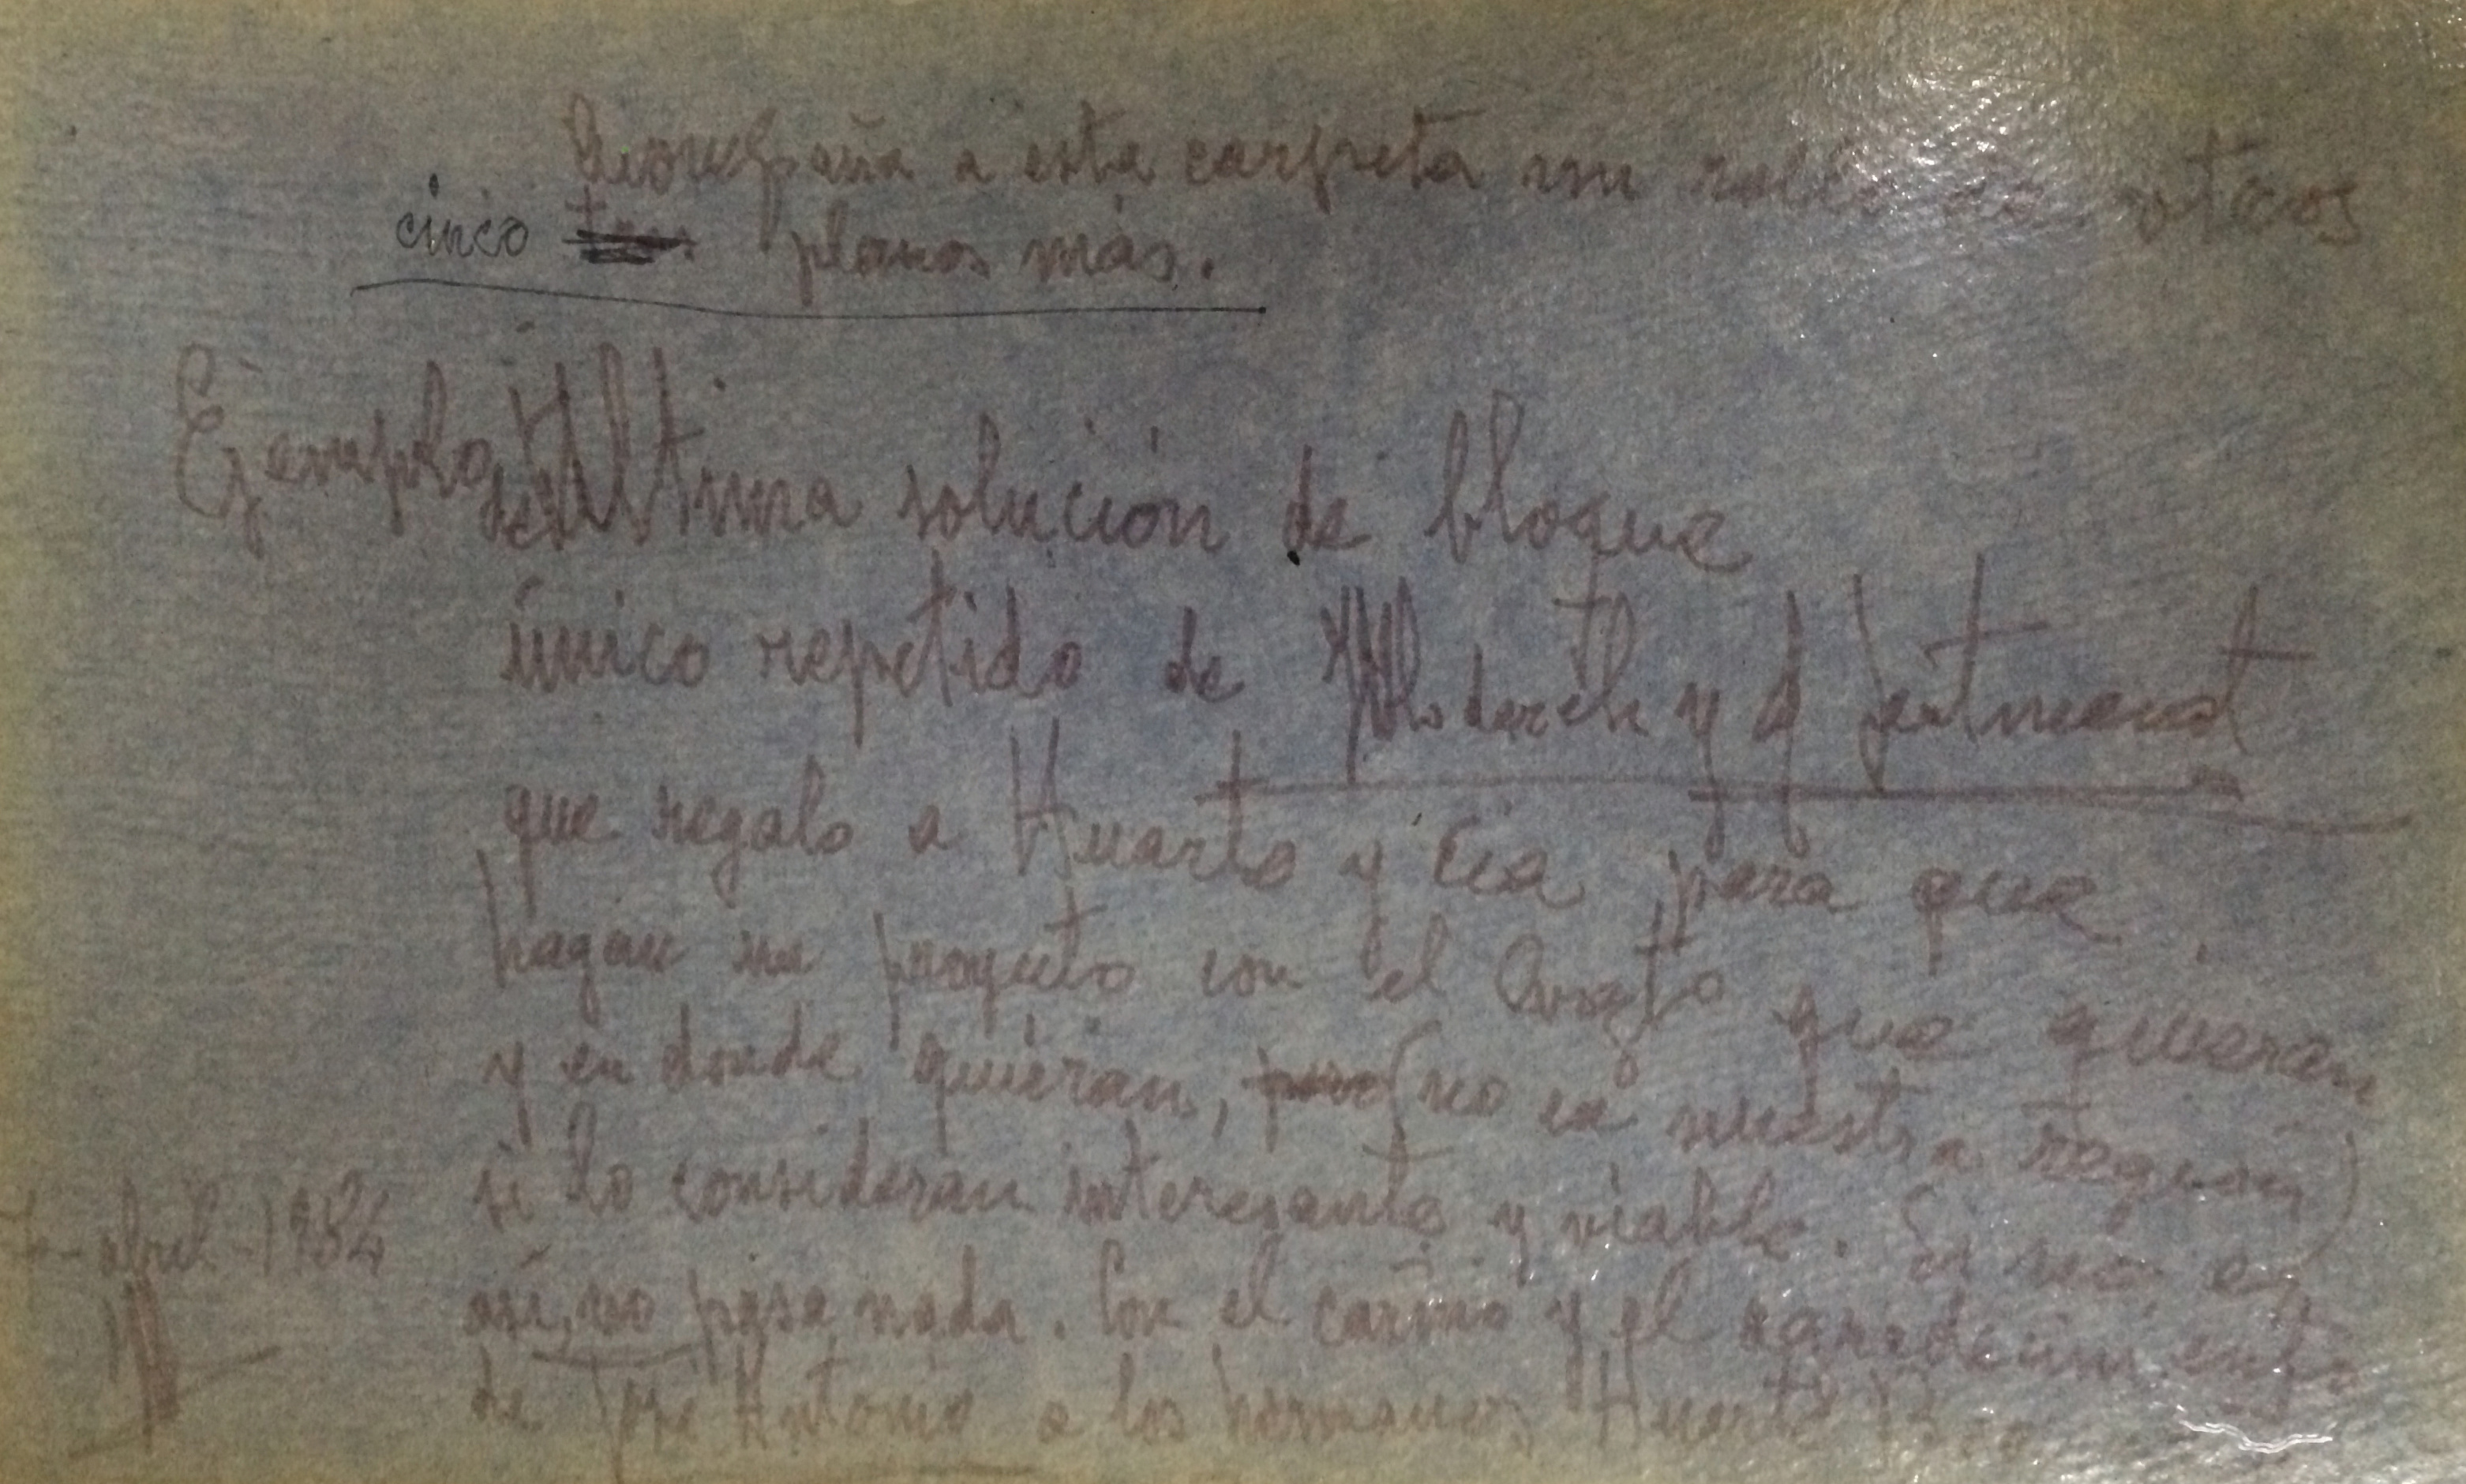 Acompaña a esta carpeta un rollo de otros
cinco tres planos más.
Ejemplo de última solución de bloque
único repetido de y
que regalo a Huarte y Cía para que
hagan un proyecto con el Arqto que quieran
y en donde quieran, pero (no en nuestra región)
si lo consideran interesante y viable. Si no es
así, no pasa nada. Con el cariño y el
de José Antonio a los hermanos Huarte
7-abril-1984